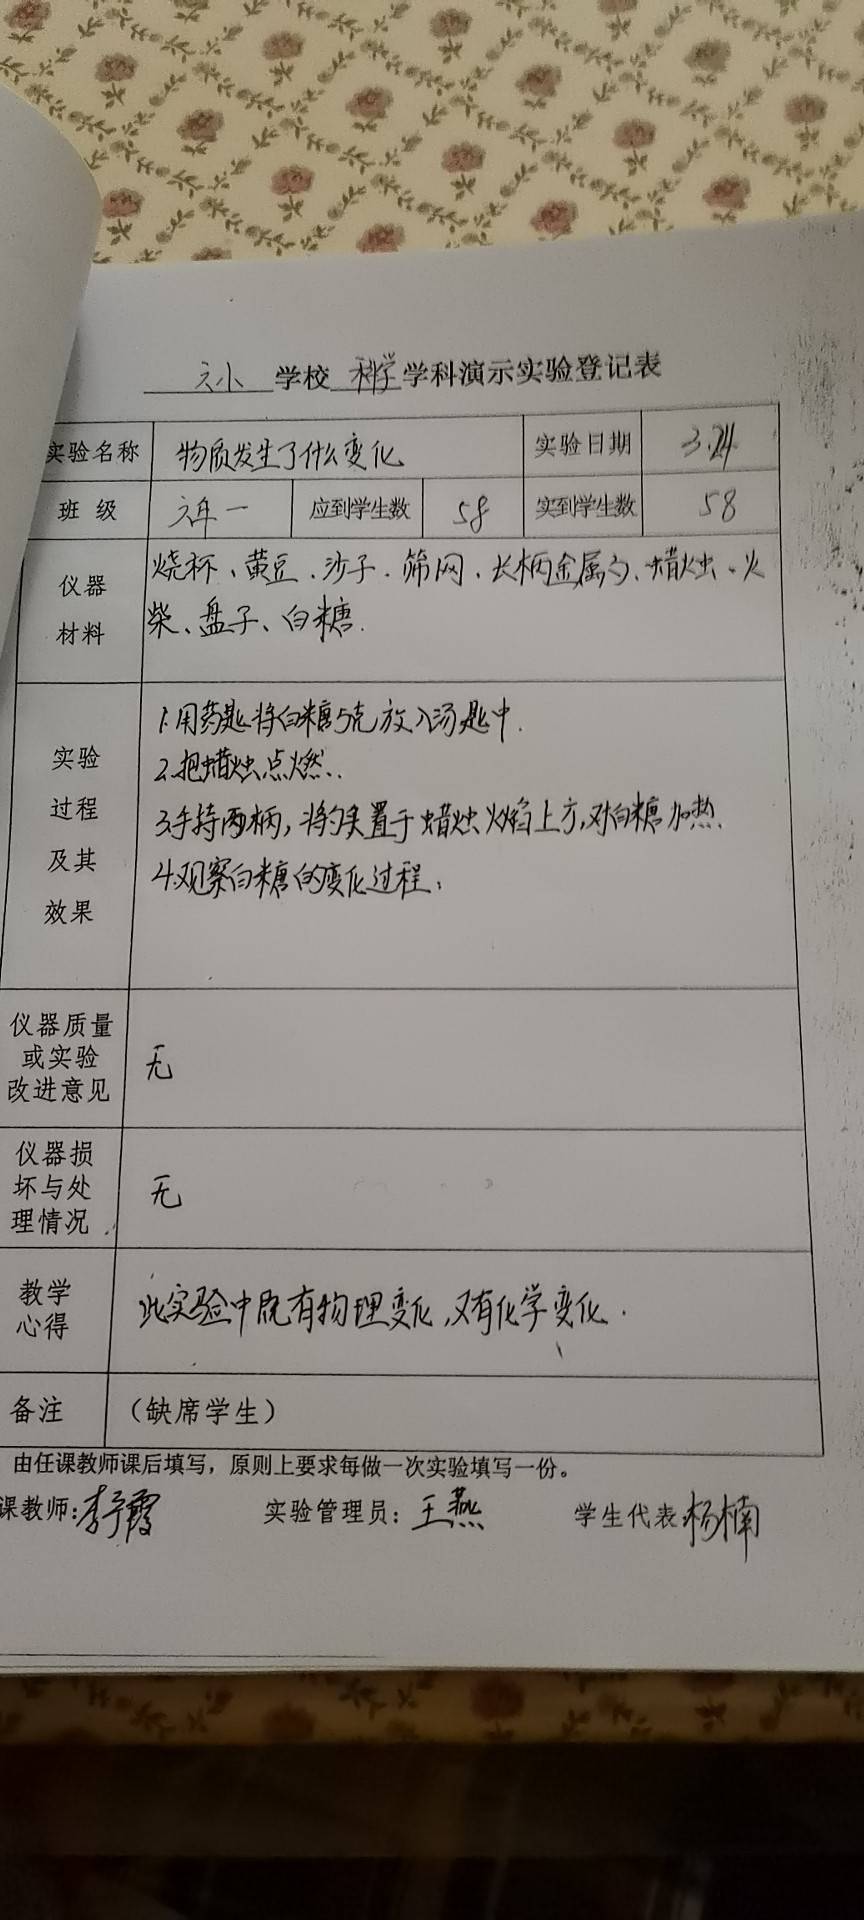 六小 学校 科学 学科演示实验登记表
实验名称 物质发生了什么变化 实验日期 3.24
班 级 六年一 应到学生数 58 实到学生数 58
仪器
材料
烧杯、黄豆、沙子、筛网、长柄金属勺、蜡烛、火
柴、盘子、白糖.
实验
过程
及其
效果
1.用药匙将白糖5克放入汤匙中.
2.把蜡烛点燃.
3.手持两柄,将勺具置于蜡烛火焰上方,对白糖加热.
4.观察白糖的变化过程.
仪器质量
或实验
改进意见
无
仪器损
坏与处
理情况
无
教学
心得
此实验中既有物理变化,又有化学变化.
备注 （缺席学生）
由任课教师课后填写，原则上要求每做一次实验填写一份。
课教师: 李 霞 实验管理员: 王燕 学生代表 杨楠